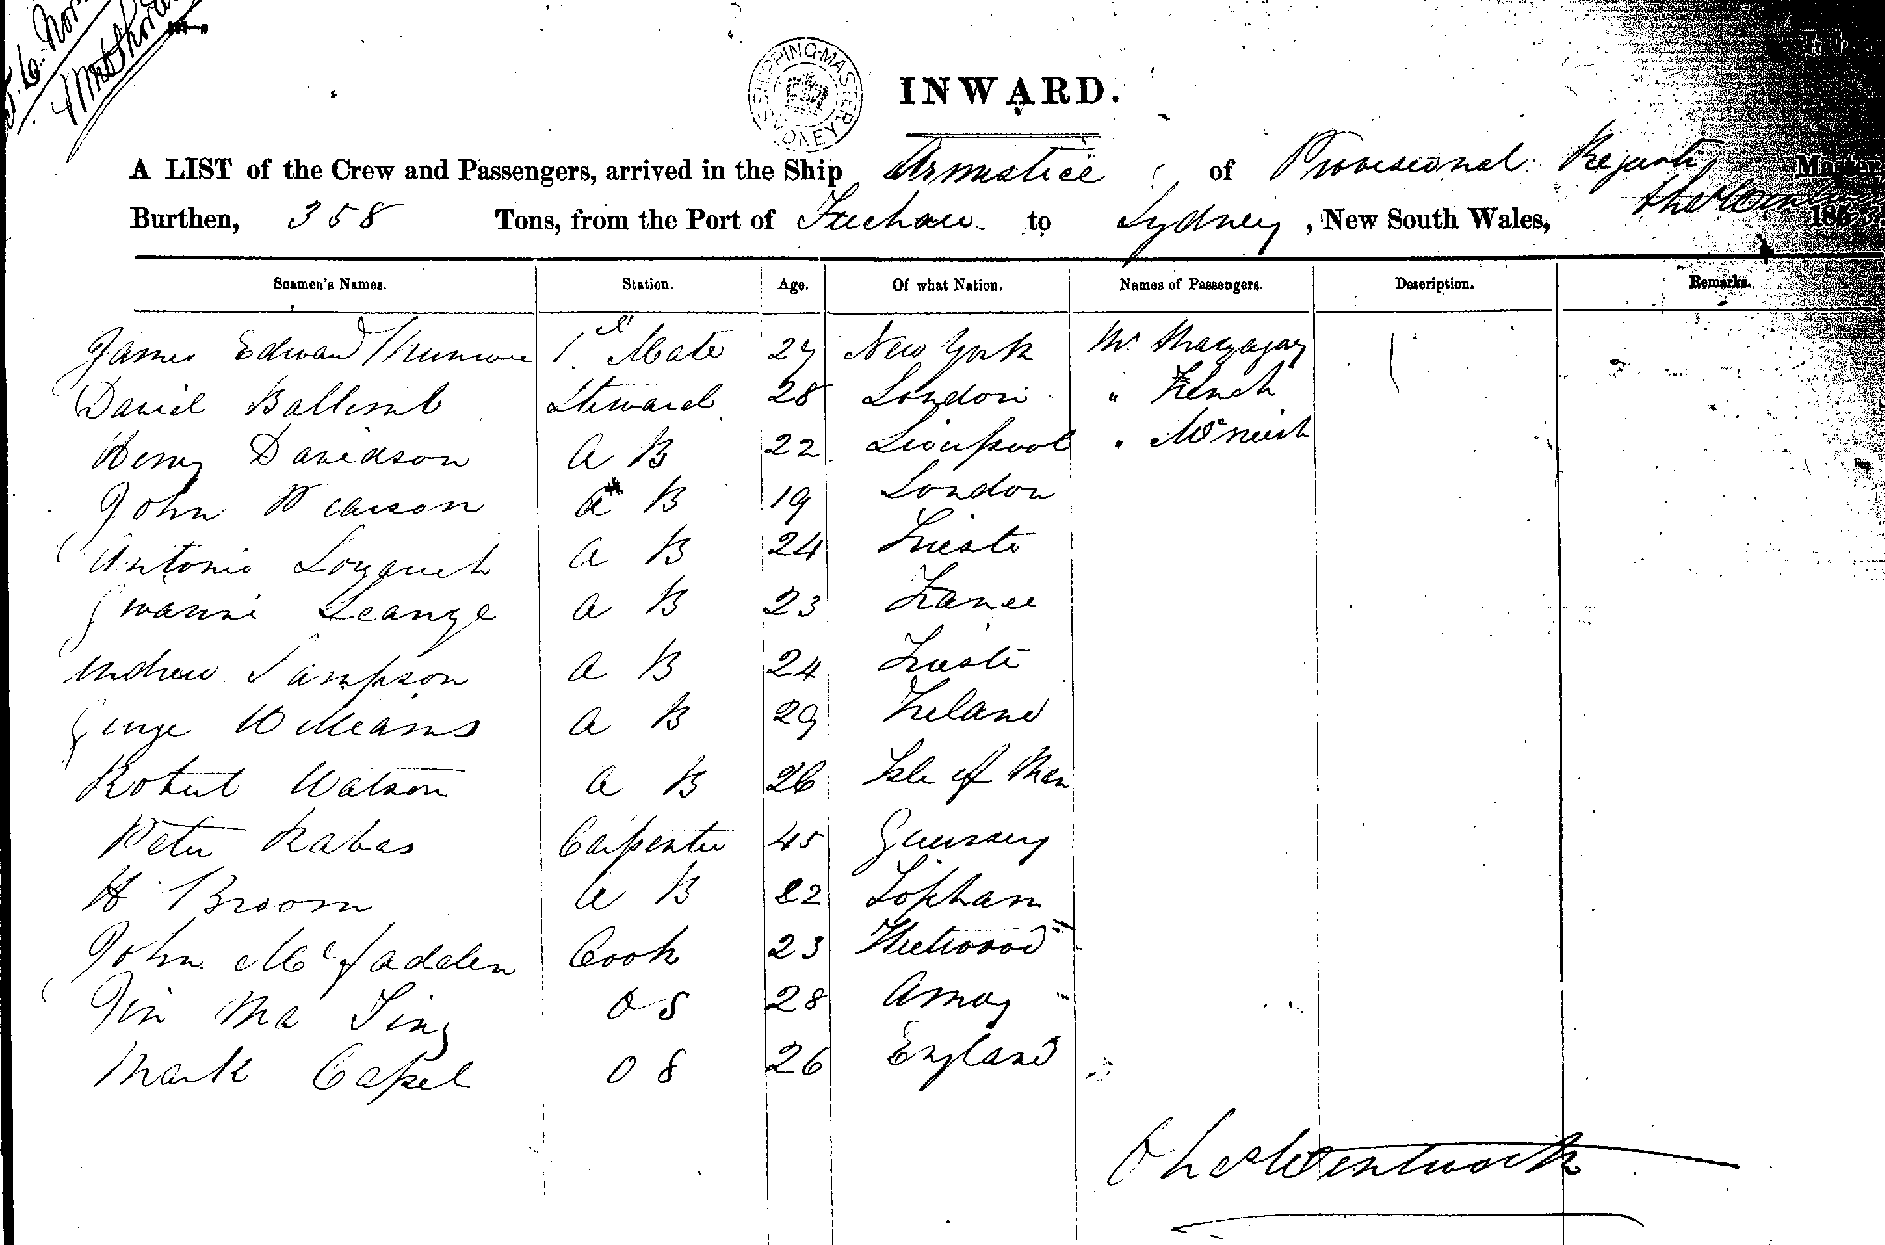 SHIPPING MASTER SYDNEY
INWARD.
A LIST of the Crew and Passengers, arrived in the Ship Armistice of Provisional Master
Burthen, 358 Tons, from the Port of to Sydney, New South Wales, 186
Seamen's Names. Station. Age. Of what Nation. Names of Passengers. Description. Remarks.
James Edward 1st Mate 27 New York Mr
David Steward 28 London " French
Henry Davidson A B 22 Liverpool "
John Pearson A B 19 London
Antonio A B 24 Trieste
A B 23 France
Andrew Sampson A B 24 Trieste
George Williams A B 29 Ireland
Robert Watson A B 26 Isle of Man
Peter Rabas Carpenter 45 Guernsey
H Broom A B 22 Topham
John McFadden Cook 23 Fleetwood
Ma Sing O S 28 Amoy
Mark Capel O S 26 England
Chas Wentworth